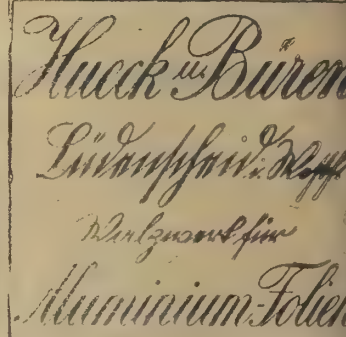 Hueck u. Büren
Lüdenscheid i. Westf.
Walzwerk für
Aluminium-Folien